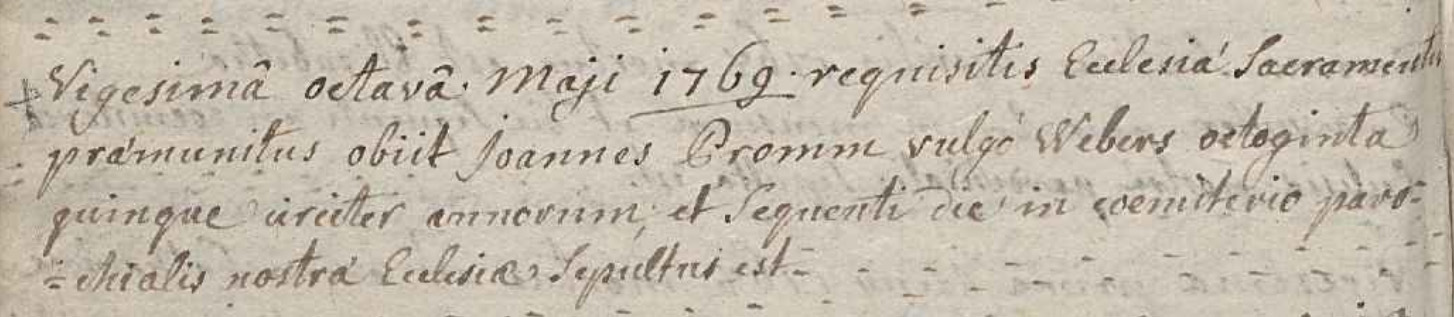 Vigesimâ octavâ. Maji 1769. requisitis Ecclesiæ Sacramentis
præmunitus obiit Joannes Promm vulgò Webers octoginta
quinque circiter annorum, et Sequenti die in coemiterio paro=
=chialis nostræ Ecclesiæ Sepultus est